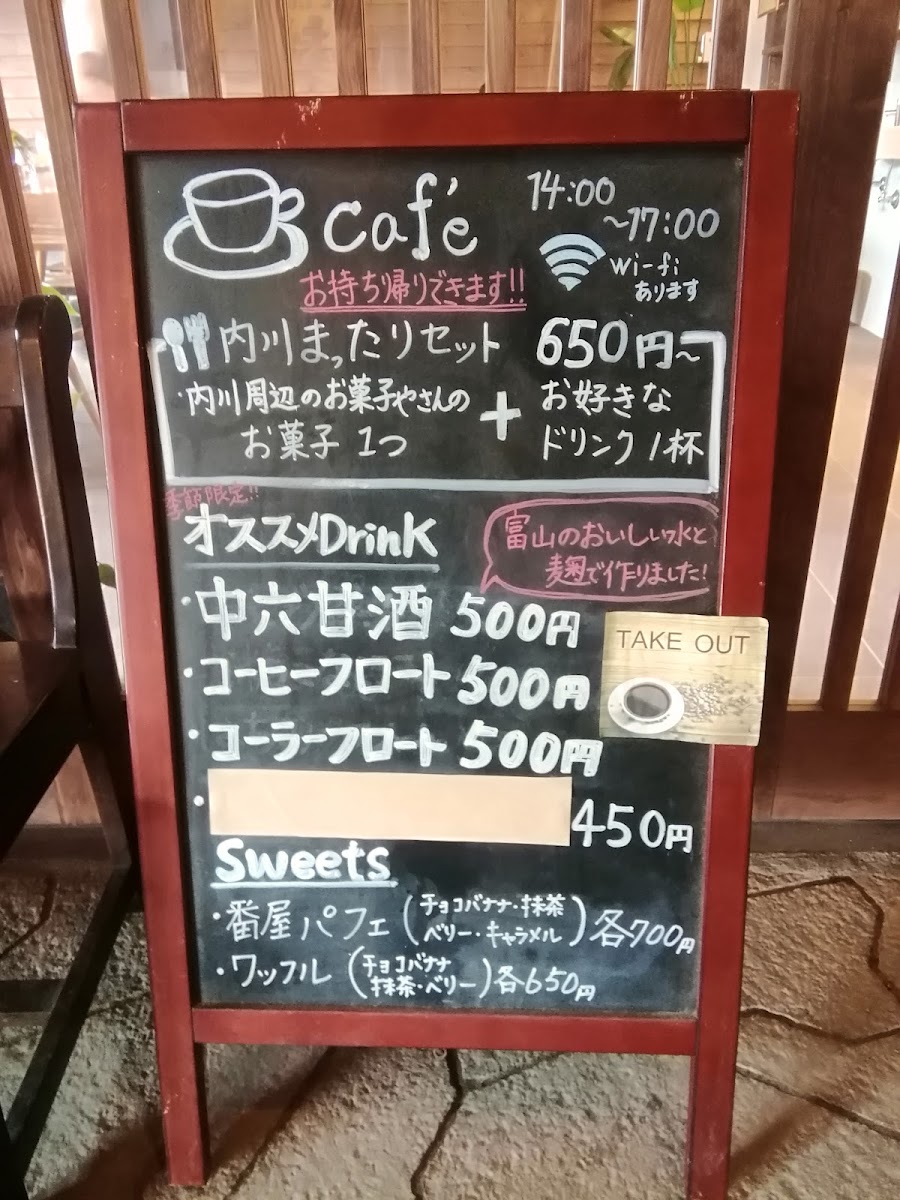 café
14:00
～17:00
wi-fi
あります
お持ち帰りできます!!
内川まったりセット 650円～
・内川周辺のお菓子やさんの
お菓子 1つ
+
お好きな
ドリンク1杯
季節限定!!
オススメDrinK
富山のおいしい水と
麹で作りました!
・中六甘酒 500円
・コーヒーフロート 500円
・コーラーフロート 500円
・ 450円
TAKE OUT
Sweets
・番屋パフェ (チョコバナナ・抹茶
ベリー・キャラメル) 各700円
・ワッフル (チョコバナナ
抹茶・ベリー) 各650円